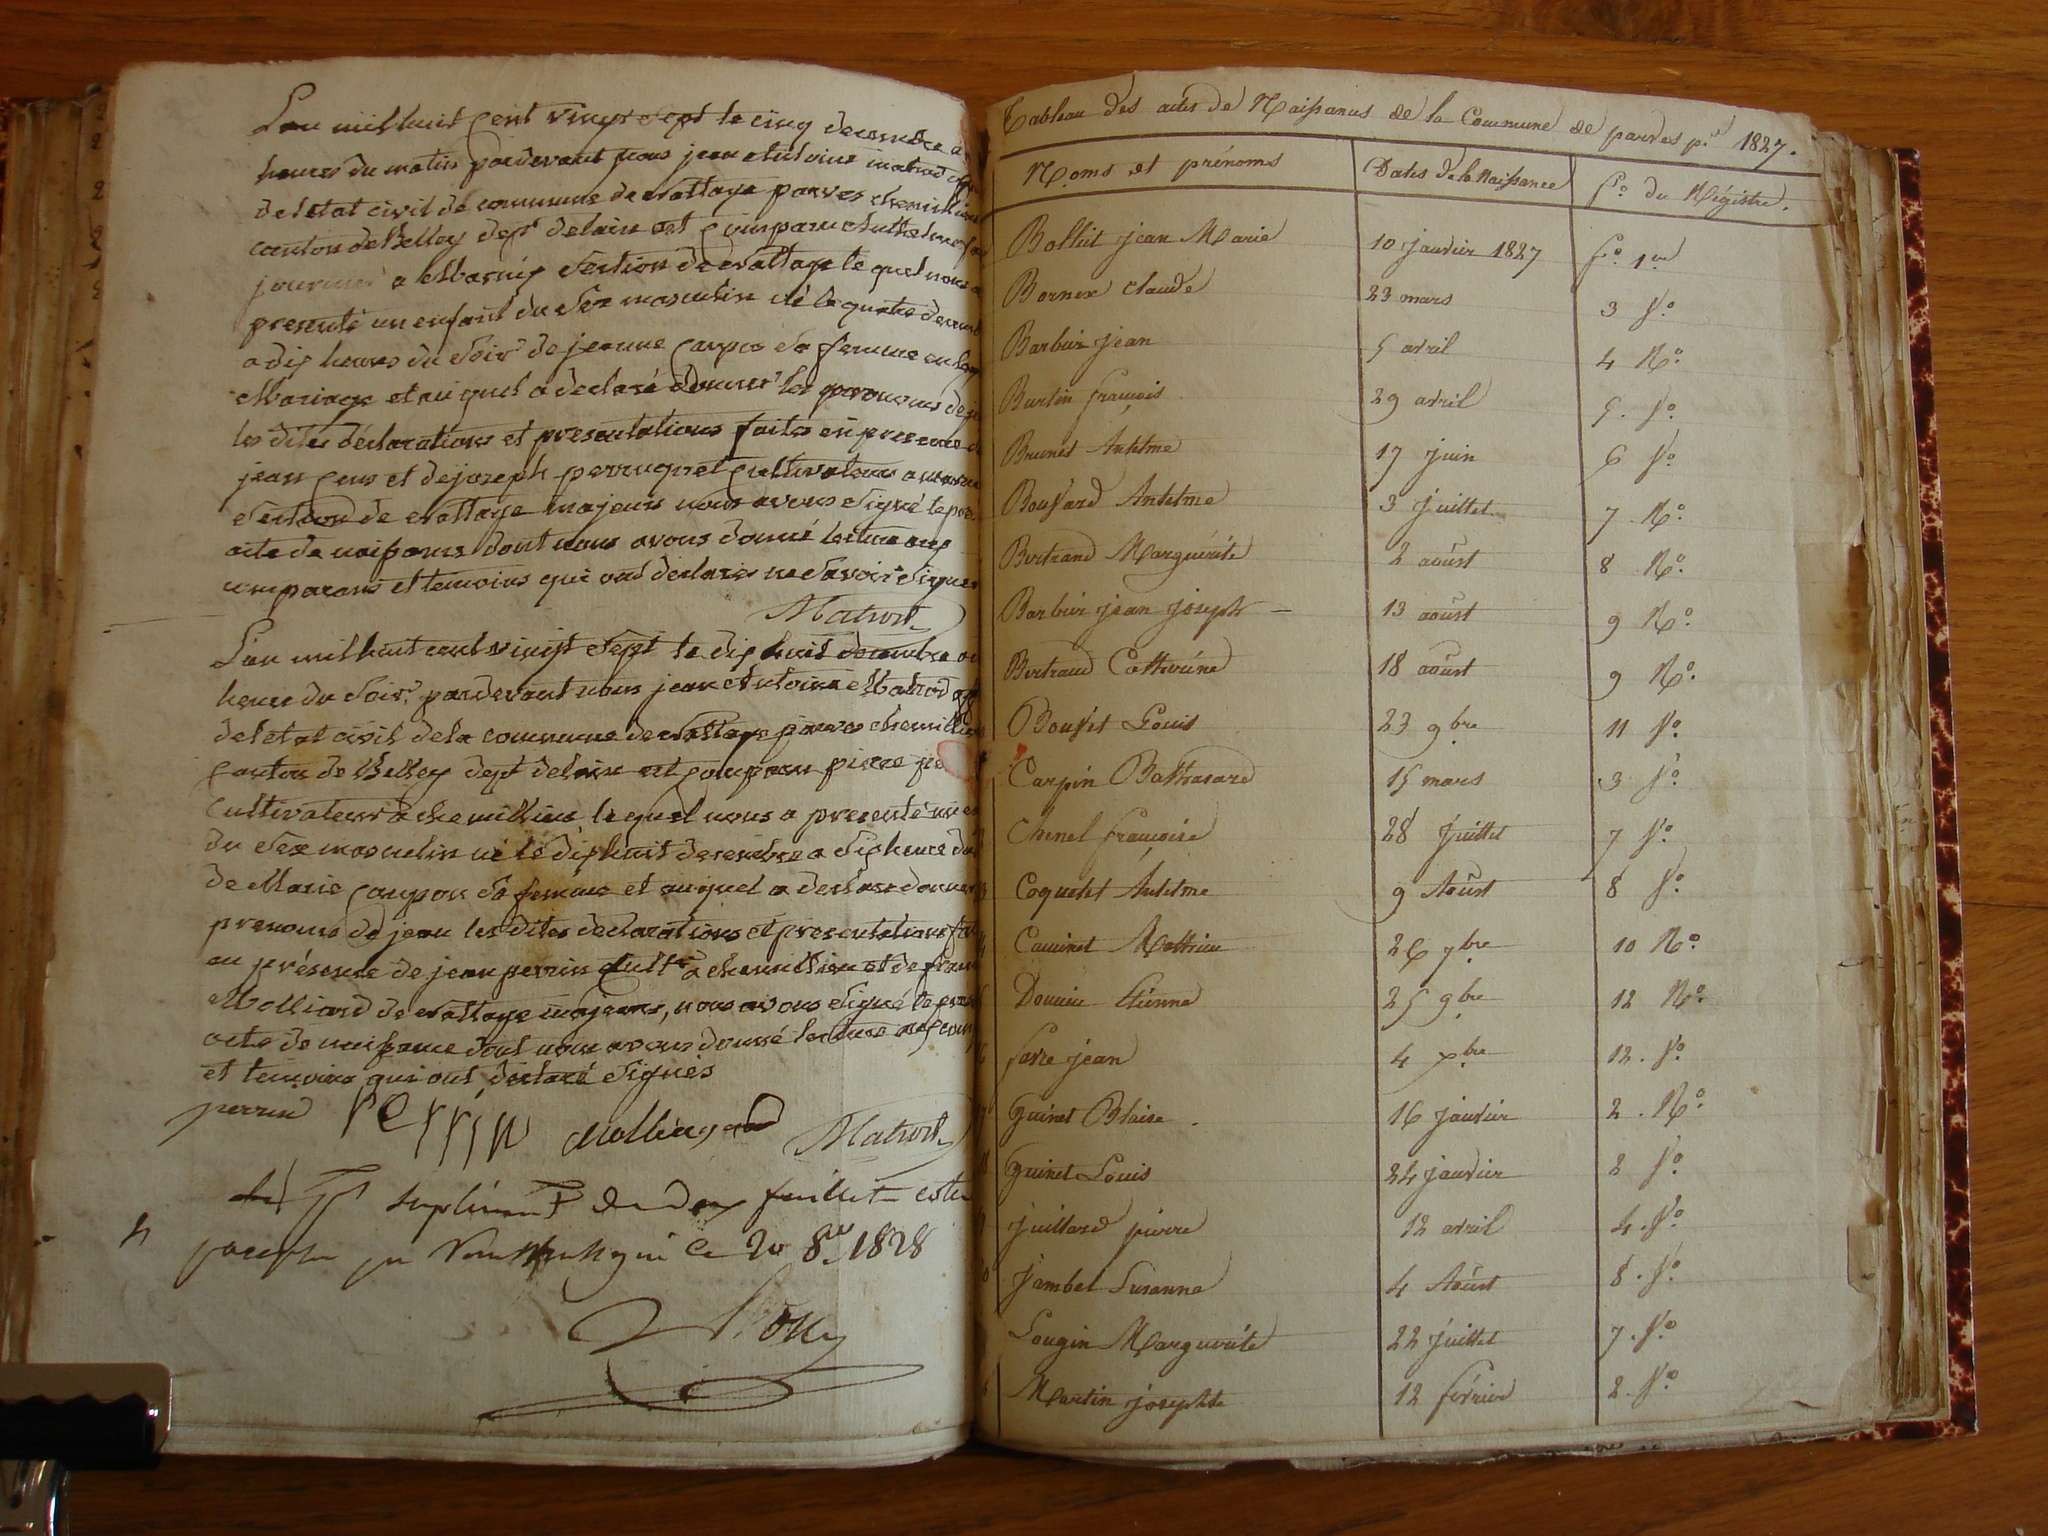 L'an mil huit cent vingt sept le cinq decembre a
heures du matin pardevant nous jean antoine matrod
de letat civil de commune de crattage parves chemillieu
canton de Belley dept delain est comparu
journier a section de crattage le quel nous a
presenté un enfant du sexe masculin né le quatre decemb
a dix heures du soir de jeanne sa femme en
Mariage et auquel a declaré donner les prenoms de
les dites déclarations et presentations faites en presence
jean et de joseph perruquet cultivateurs a
section de crattage majeurs nous avons signé le
acte de naissance dont nous avons donné lecture aux
comparans et temoins qui ont declarés ne savoir signer
Matrod
L'an mil huit cent vingt sept le dix huit decembre
heure du soir pardevant nous jean antoine Matrod
de letat civil de la commune de crattage parves chemillieu
canton de Belley dept delain est comparu pierre
cultivateur a chemillieu le quel nous a presenté un
du sexe masculin né le dix huit decembre a dix heure du
de Marie sa femme et auquel a declaré donner
prenoms de jean les dites declarations et presentations
en présence de jean perrin cult.r a chemillieu et de
Molliard de crattage majeurs, nous avons signé le
acte de naissance dont nous avons donné lecture aux
et temoins qui ont declaré signés
perrin perrin Matrod
supliment de deux feuillets
le 20 8bre 1828
Tableau des actes de Naissances de la Commune de parves pr. 1827.
Noms et prénoms Dates de la Naissance fo. du Régistre.
Bollut jean Marie 10 janvier 1827 fo. 1er
Bornex claude 23 mars 3 Vo.
Barbier jean 5 avril 4 Ro.
Burtin françois 29 avril 5. Vo.
Brunet Anthelme 17 juin 6 Vo.
Bouvard Anthelme 3 juillet 7 Ro.
Bertrand Marguérite 2 aoûst 8 Ro.
Barbier jean joseph 13 aoûst 9 Ro.
Bertrand Catherine 18 aoûst 9 Ro.
Bouvet Louis 23 9bre 11 Vo.
Carpin Balthasard 15 mars 3 Vo.
Chenel françoise 28 juillet 7 Vo.
Coquetet Anthelme 9 Aoûst 8 Vo.
Mathieu 26 7bre 10 Ro.
Etienne 25 9bre 12 Ro.
favre jean 4 Xbre 12. Vo.
guinet Blaise. 16 janvier 2. Ro.
guinet Louis 24 janvier 2 Vo.
juillard pierre 12 avril 4. Vo.
jambet Susanne 4 Aoûst 8. Vo.
Lougin Marguerite 22 juillet 7. Vo.
Martin josephte 12 février 2. Vo.